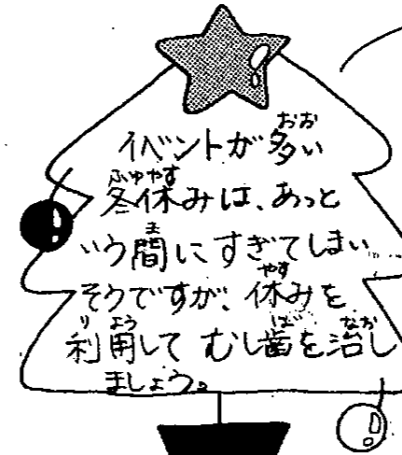 イベントが多い
冬休みは、あっと
いう間にすぎてしまい
そうですが、休みを
利用して むし歯を治し
ましょう。